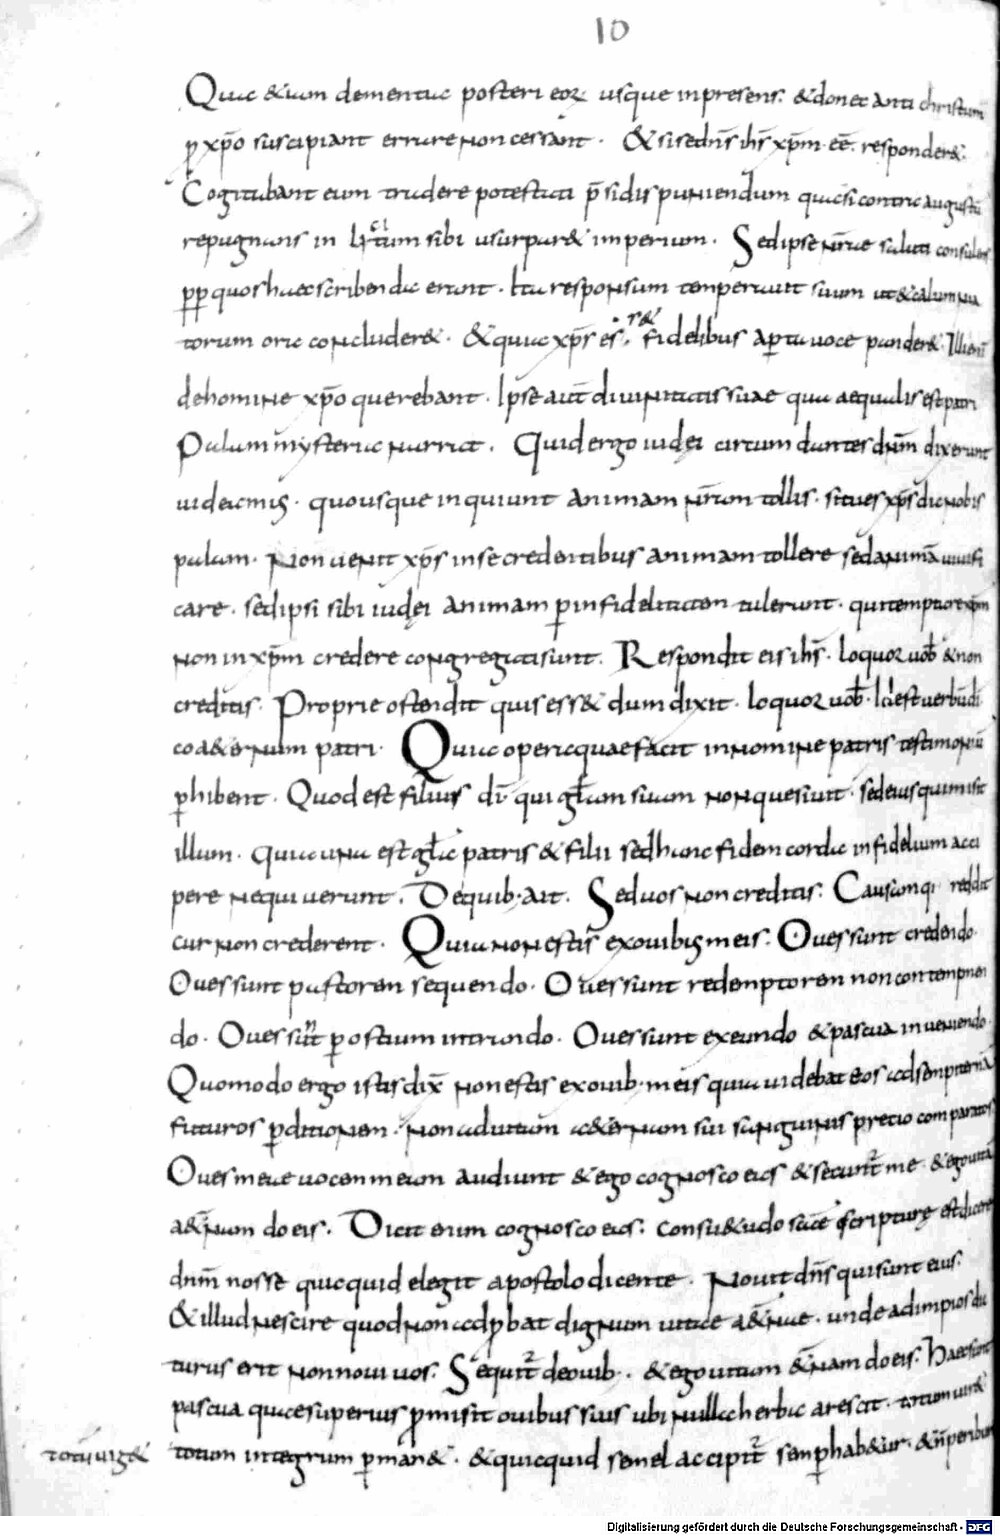 10
Quae & iam dementiae posteri eorꝝ usque in presens. & donec anti christum
ꝑ xp̄o suscipiant errare non cessant. & si se dn̄s ih̄s xp̄m. eē. responder&.
Cogitabant eum tradere potestati p̄sidis puniendum quasi contra augustū
repugnans inlicitum sibi usurpar& imperium. Sed ipse nr̄ae saluti consulens
ꝑꝑ quos haec scribenda erant. Ita responsum temperauit suum ut & calumnia
torum ora concluder&. & quia xp̄s es&. fidelibus aperta uoce pander&. Illi enī
de homine xp̄o querebant. Ipse aut̄ diuinitatis suae qua aequalis est patri
Palam mysteria narrat. Quid ergo iudei circum dantes dn̄m dixerunt
uideamus. quousque inquiunt animam nr̄am tollis. si tu es xp̄s dic nobis
palam. Non uenit xp̄s in se credentibus animam tollere sed animā uiuifi
care. sed ipsi sibi iudęi animam ꝑ infidelitatem tulerunt. qui temptare xp̄m
non in xp̄m credere congregati sunt. Respondit eis ih̄s. loquor uob̄ & non
creditis. Proprie ostendit quis ess& dum dixit. loquor uob̄. Id est uerbū dī
coa&ernum patri. Quia opera quae facit in nomine patris testimoniū
ꝑhibent. Quod est filius dī qui gl̄am suam non quesiuit. sed eius qui misit
illum. quia una est gl̄a patris & filii sed hanc fidem corda infidelium acci
pere nequiuerunt. De quib. ait. Sed uos non creditis. Causamq; reddit
cur non crederent. Quia non estis ex ouibus meis. Oues sunt credendo.
Oues sunt pastorem sequendo. Oues sunt redemptorem non contempnen
do. Oues sunt ꝑ ostium intrando. Oues sunt exeundo & pascua inueniendo.
Quomodo ergo istis dix̄ non estis ex ouib. meis quia uidebat eos ad sempiternā
futuros ꝑditionem. non ad uitam a&ernam sui sanguinis precio comparatos
Oues meae uocem meam audiunt & ego cognosco eas & secunt̄ me. & ego uitā
a&n̄am do eis. Dicit enim cognosco eas. consu&udo scāe scripturę est dicere
dnm̄ nosse quae quid elegit apostolo dicente. Nouit dn̄s qui sunt eius.
& illud nescire quod non adꝓbat dignum uitae a&n̄ae. unde ad impios dic
turus erit non noui uos. Sequit̄ de ouib. & ego uitam &n̄am do eis. Haec sunt
pascua quae superius ꝓmisit ouibus suis ubi nulla herba arescit. totum uir&
totū uig& totum integrum ꝑman&. & quicquid semel accipit̄ semꝑ hab&ur. & n̄ peribunt
Digitalisierung gefördert durch die Deutsche Forschungsgemeinschaft - DFG